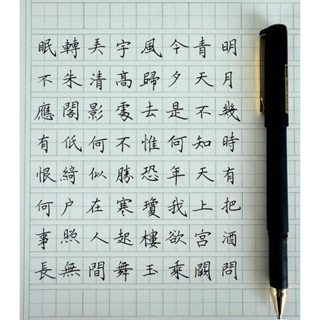 明月幾時有把酒問
青天不知天上宮闕
今夕是何年我欲乘
風歸去惟恐瓊樓玉
宇高處不勝寒起舞
弄清影何似在人間
轉朱閣低綺户照無
眠不應有恨何事長